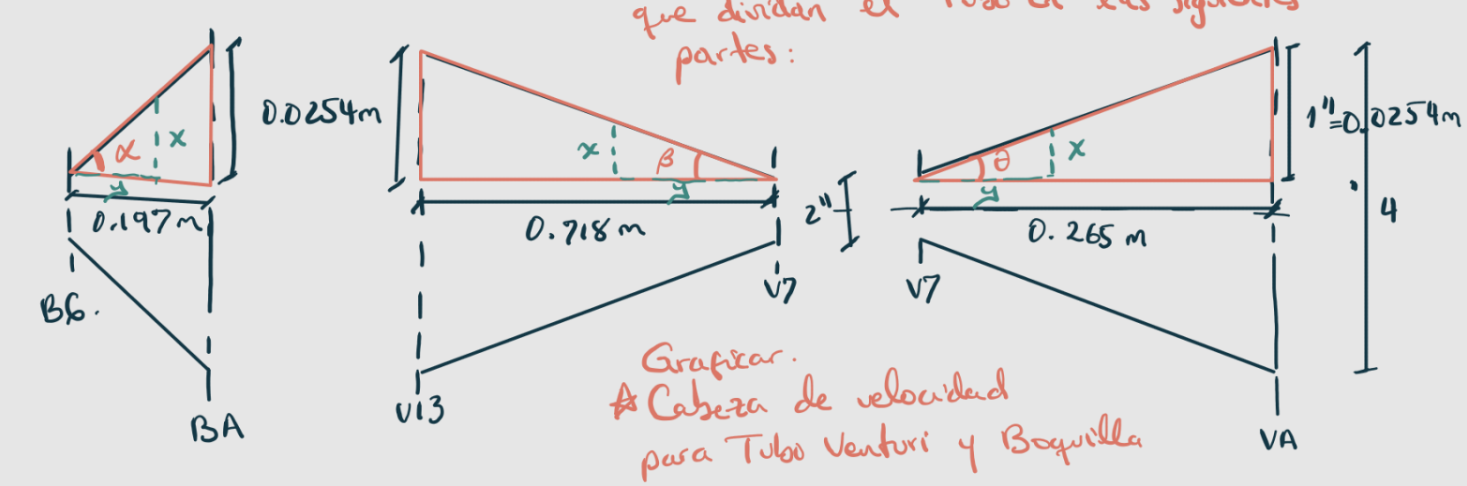 que dividan el Tubo en las siguientes
partes:
0.0254m
α
x
y
0.197 m
B6.
BA
x
β
y
0.718 m
2"
V13
V7
θ
x
y
0.265 m
1"=0.0254m
4
V7
VA
Graficar.
☆ Cabeza de velocidad
para Tubo Venturi y Boquilla